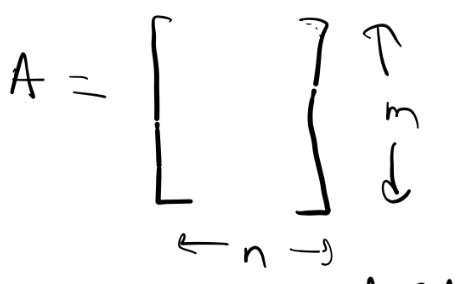 A = [ ] ↑ m ↓
← n →